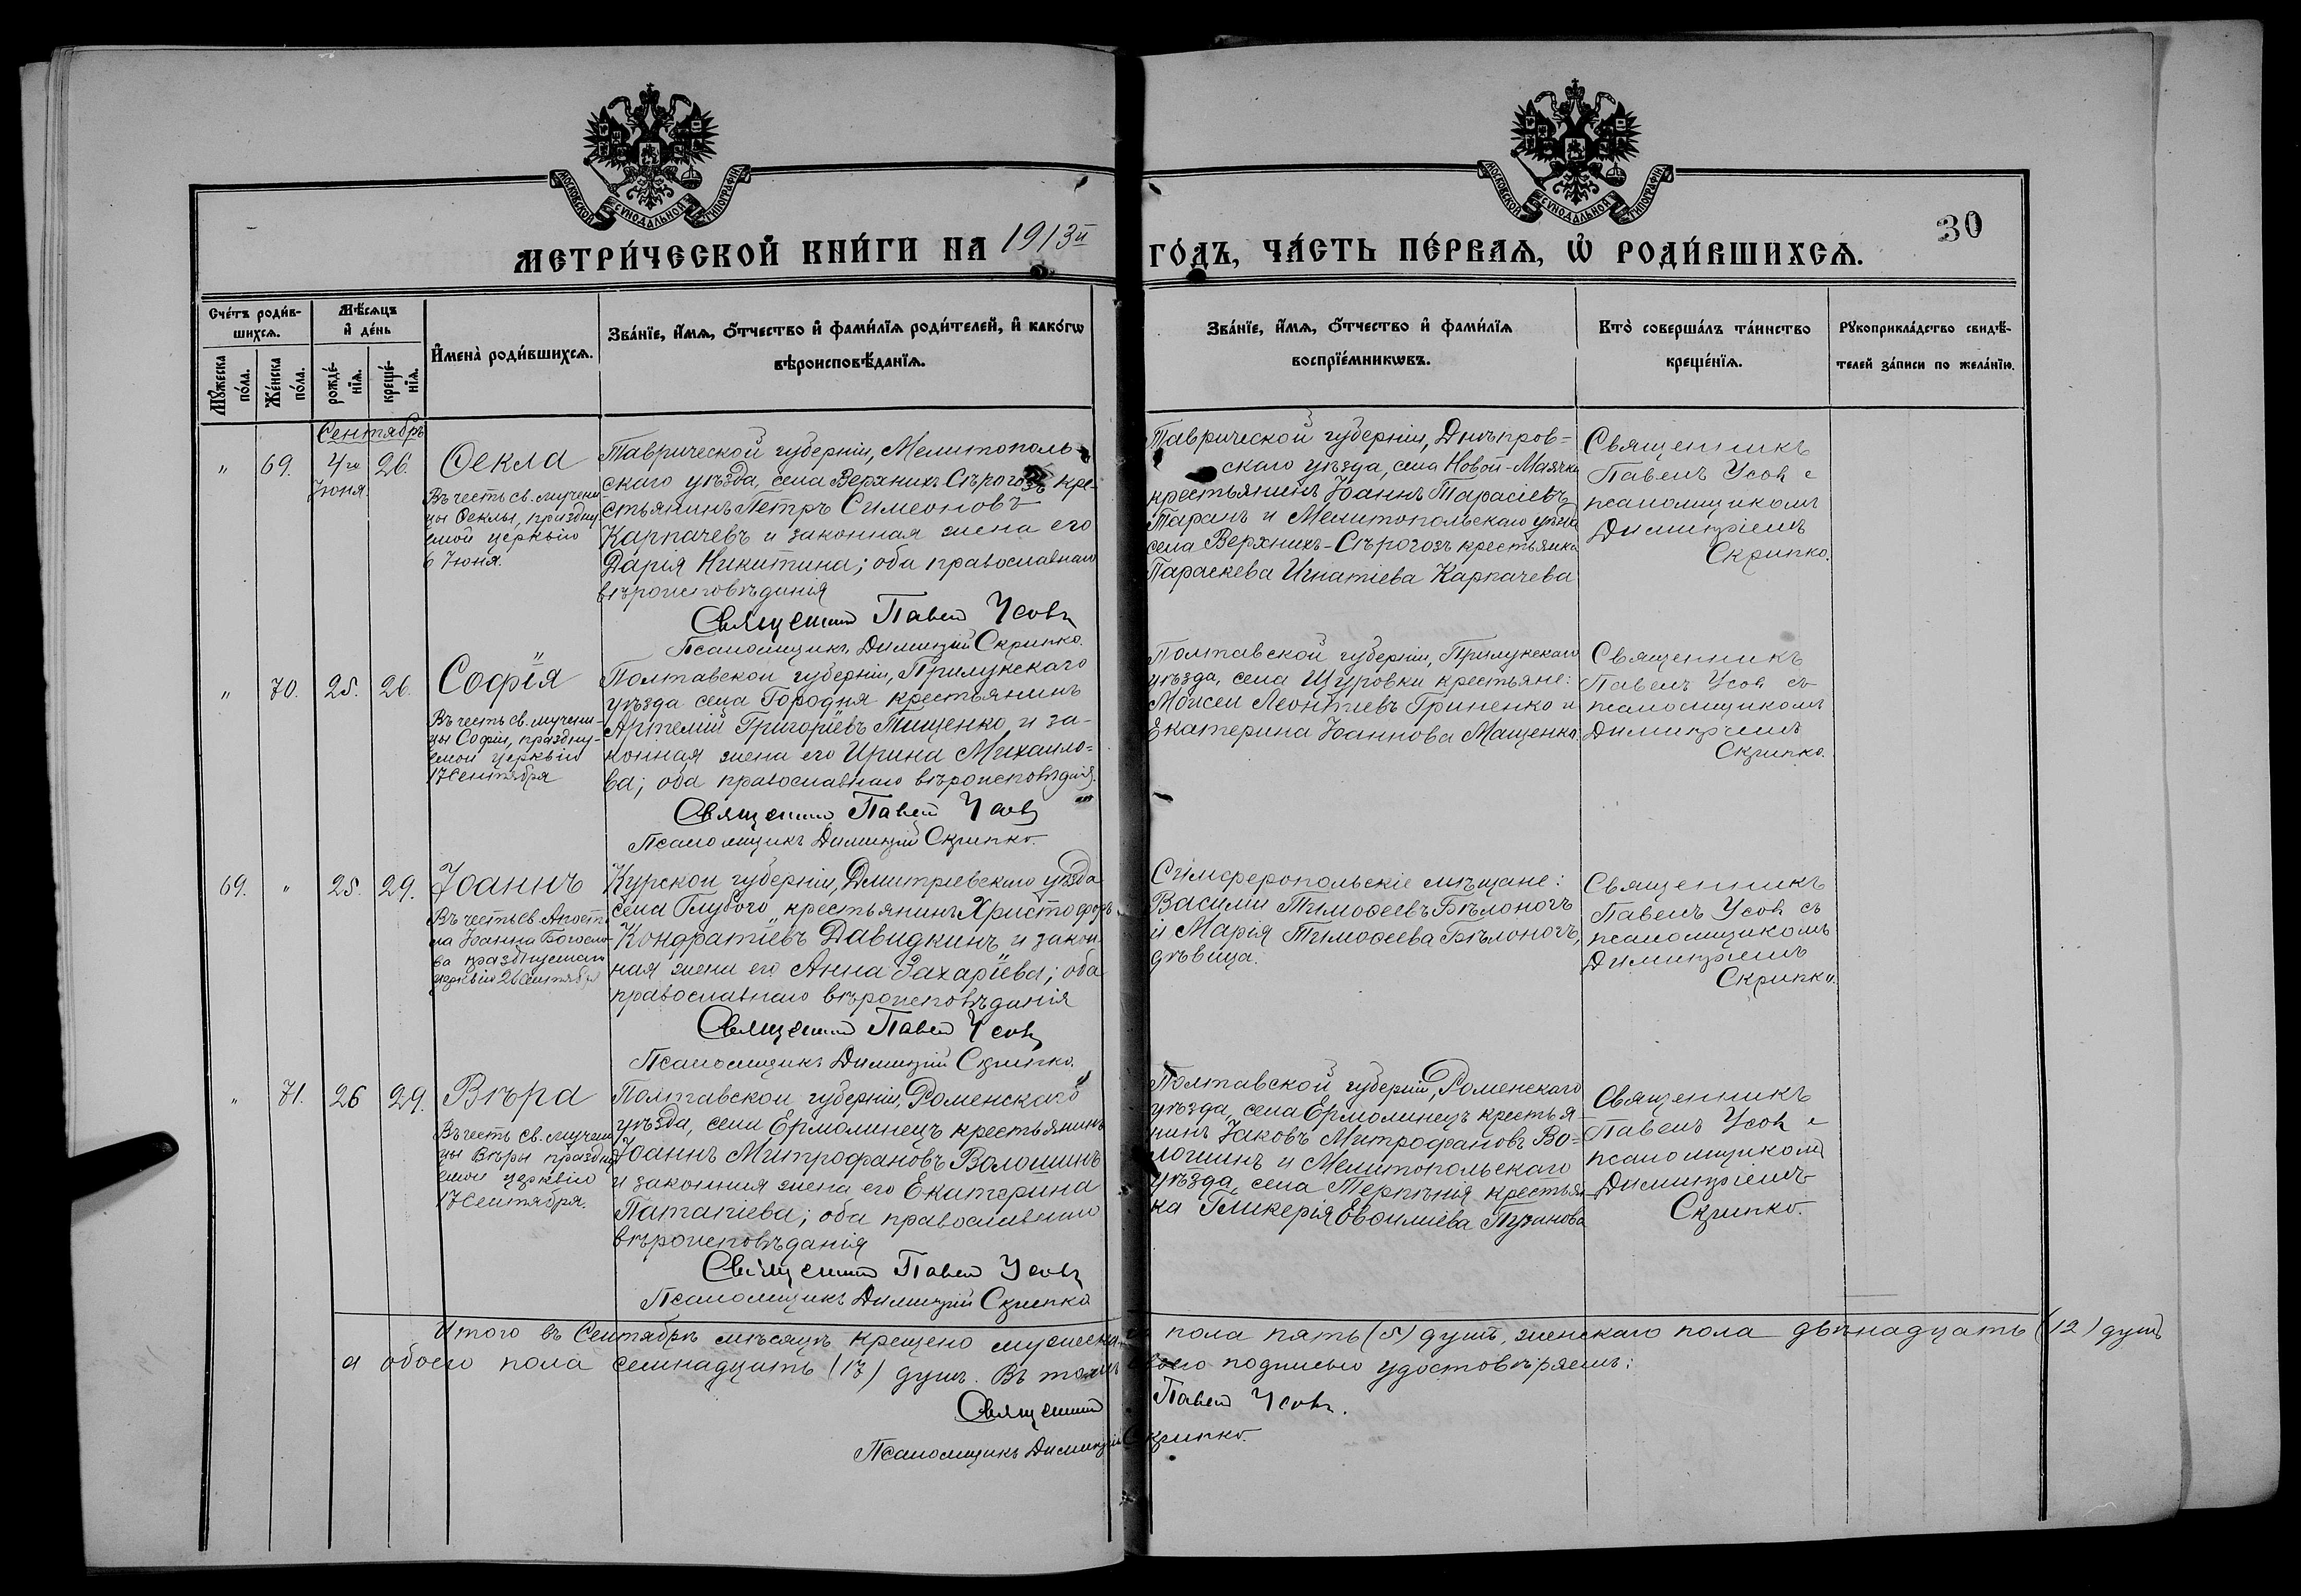 МОСКОВСКОЙ СѴНОДАЛЬНОЙ ТИПОГРАФІИ
МОСКОВСКОЙ СѴНОДАЛЬНОЙ ТИПОГРАФІИ
30
МЕТРИ́ЧЕСКОЙ КНИ́ГИ НА 1913й ГО́ДЪ, ЧА́СТЬ ПЕ́РВАѦ, Ѡ҆ РОДИ́ВШИХСѦ.
Сче́тъ роди́в-
шихсѧ.
Мꙋ́жеска по́ла.
Же́нска по́ла.
Мѣ́сѧцъ
и҆ де́нь
рожде́-
нїѧ.
креще́-
нїѧ.
И҆мена̀ роди́вшихсѧ.
Зва́нїе, и҆́мѧ, ѻ҆́тчество и҆ фами́лїѧ роди́телей, и҆ како́гѡ
вѣроисповѣ́данїѧ.
Зва́нїе, и҆́мѧ, ѻ҆́тчество и҆ фами́лїѧ
воспрїе́мникѡвъ.
Кто̀ соверша́лъ та́инство
креще́нїѧ.
Рꙋкоприкла́дство свидѣ́-
телей за́писи по жела́нїю.
Сентябрь
" 69. 4го Іюня. 26.
Ѳекла
Въ честь св. мучени-
цы Ѳеклы, праздну-
емой церквію
6 Іюня.
Таврической губерніи, Мелитополь-
скаго уѣзда, села Верхнихъ Сѣрогозъ кре-
стьянинъ Петръ Симеоновъ
Карпачевъ и законная жена его
Дарія Никитина; оба православнаго
вѣроисповѣданія
Священникъ Павелъ Усовъ
Псаломщикъ Димитрій Скрипко.
Таврической губерніи, Днѣпров-
скаго уѣзда, села Новой-Маячки
крестьянинъ Іоаннъ Тарасіевъ
Таранъ и Мелитопольскаго уѣзда
села Верхнихъ-Сѣрогозъ крестьянка
Параскева Игнатіева Карпачева
Священникъ
Павелъ Усовъ с
псаломщикомъ
Димитріемъ
Скрипко.
" 70. 25. 26.
Софія
Въ честь св. мучени-
цы Софіи, праздну-
емой церквію
17 Сентября
Полтавской губерніи, Прилукскаго
уѣзда села Городня крестьянинъ
Артемій Григоріевъ Тищенко и за-
конная жена его Ирина Михаило-
ва; оба православнаго вѣроисповѣданія.
Священникъ Павелъ Усовъ
Псаломщикъ Димитрій Скрипко.
Полтавской губерніи, Прилукскаго
уѣзда, села Щуровки крестьяне:
Моисей Леонтіевъ Гриненко и
Екатерина Іоаннова Мащенко.
Священникъ
Павелъ Усовъ съ
псаломщикомъ
Димитріемъ
Скрипко.
69. " 25. 29.
Іоаннъ
Въ честь св. Апосто-
ла Іоанна Богосло-
ва празднуемаго
церквію 26 Сентября
Курской губерніи, Дмитріевскаго уѣзда
села Глубого крестьянинъ Христофоръ
Кондратіевъ Давидкинъ и закон-
ная жена его Анна Захаріева; оба
православнаго вѣроисповѣданія
Священникъ Павелъ Усовъ
Псаломщикъ Димитрій Скрипко.
Симферопольскіе мѣщане:
Василій Тимоѳеевъ Бѣлоногъ
и Марія Тимоѳеева Бѣлоногъ,
дѣвица.
Священникъ
Павелъ Усовъ съ
псаломщикомъ
Димитріемъ
Скрипко.
" 71. 26 29.
Вѣра
Въ честь св. мучени-
цы Вѣры праздну-
емой церквію
17 Сентября.
Полтавской губерніи, Роменскаго
уѣзда, села Ермолинецъ крестьянинъ
Іоаннъ Митрофановъ Волошинъ
и законная жена его Екатерина
Патапіева; оба православнаго
вѣроисповѣданія
Священникъ Павелъ Усовъ
Псаломщикъ Димитрій Скрипко
Полтавской губерніи, Роменскаго
уѣзда, села Ермолинецъ крестья-
нинъ Іаковъ Митрофановъ Во-
лошинъ и Мелитопольскаго
уѣзда, села Терпѣнія крестьян-
ка Гликерія Евѳиміева Пузанова
Священникъ
Павелъ Усовъ с
псаломщикомъ
Димитріемъ
Скрипко.
Итого въ Сентябрѣ мѣсяцѣ крещено мужеска пола пять (5) душъ, женскаго пола двѣнадцать (12) душъ
а обоего пола семнадцать (17) душъ. Въ томъ своею подписью удостовѣряемъ:
Священникъ Павелъ Усовъ.
Псаломщикъ Димитрій Скрипко.